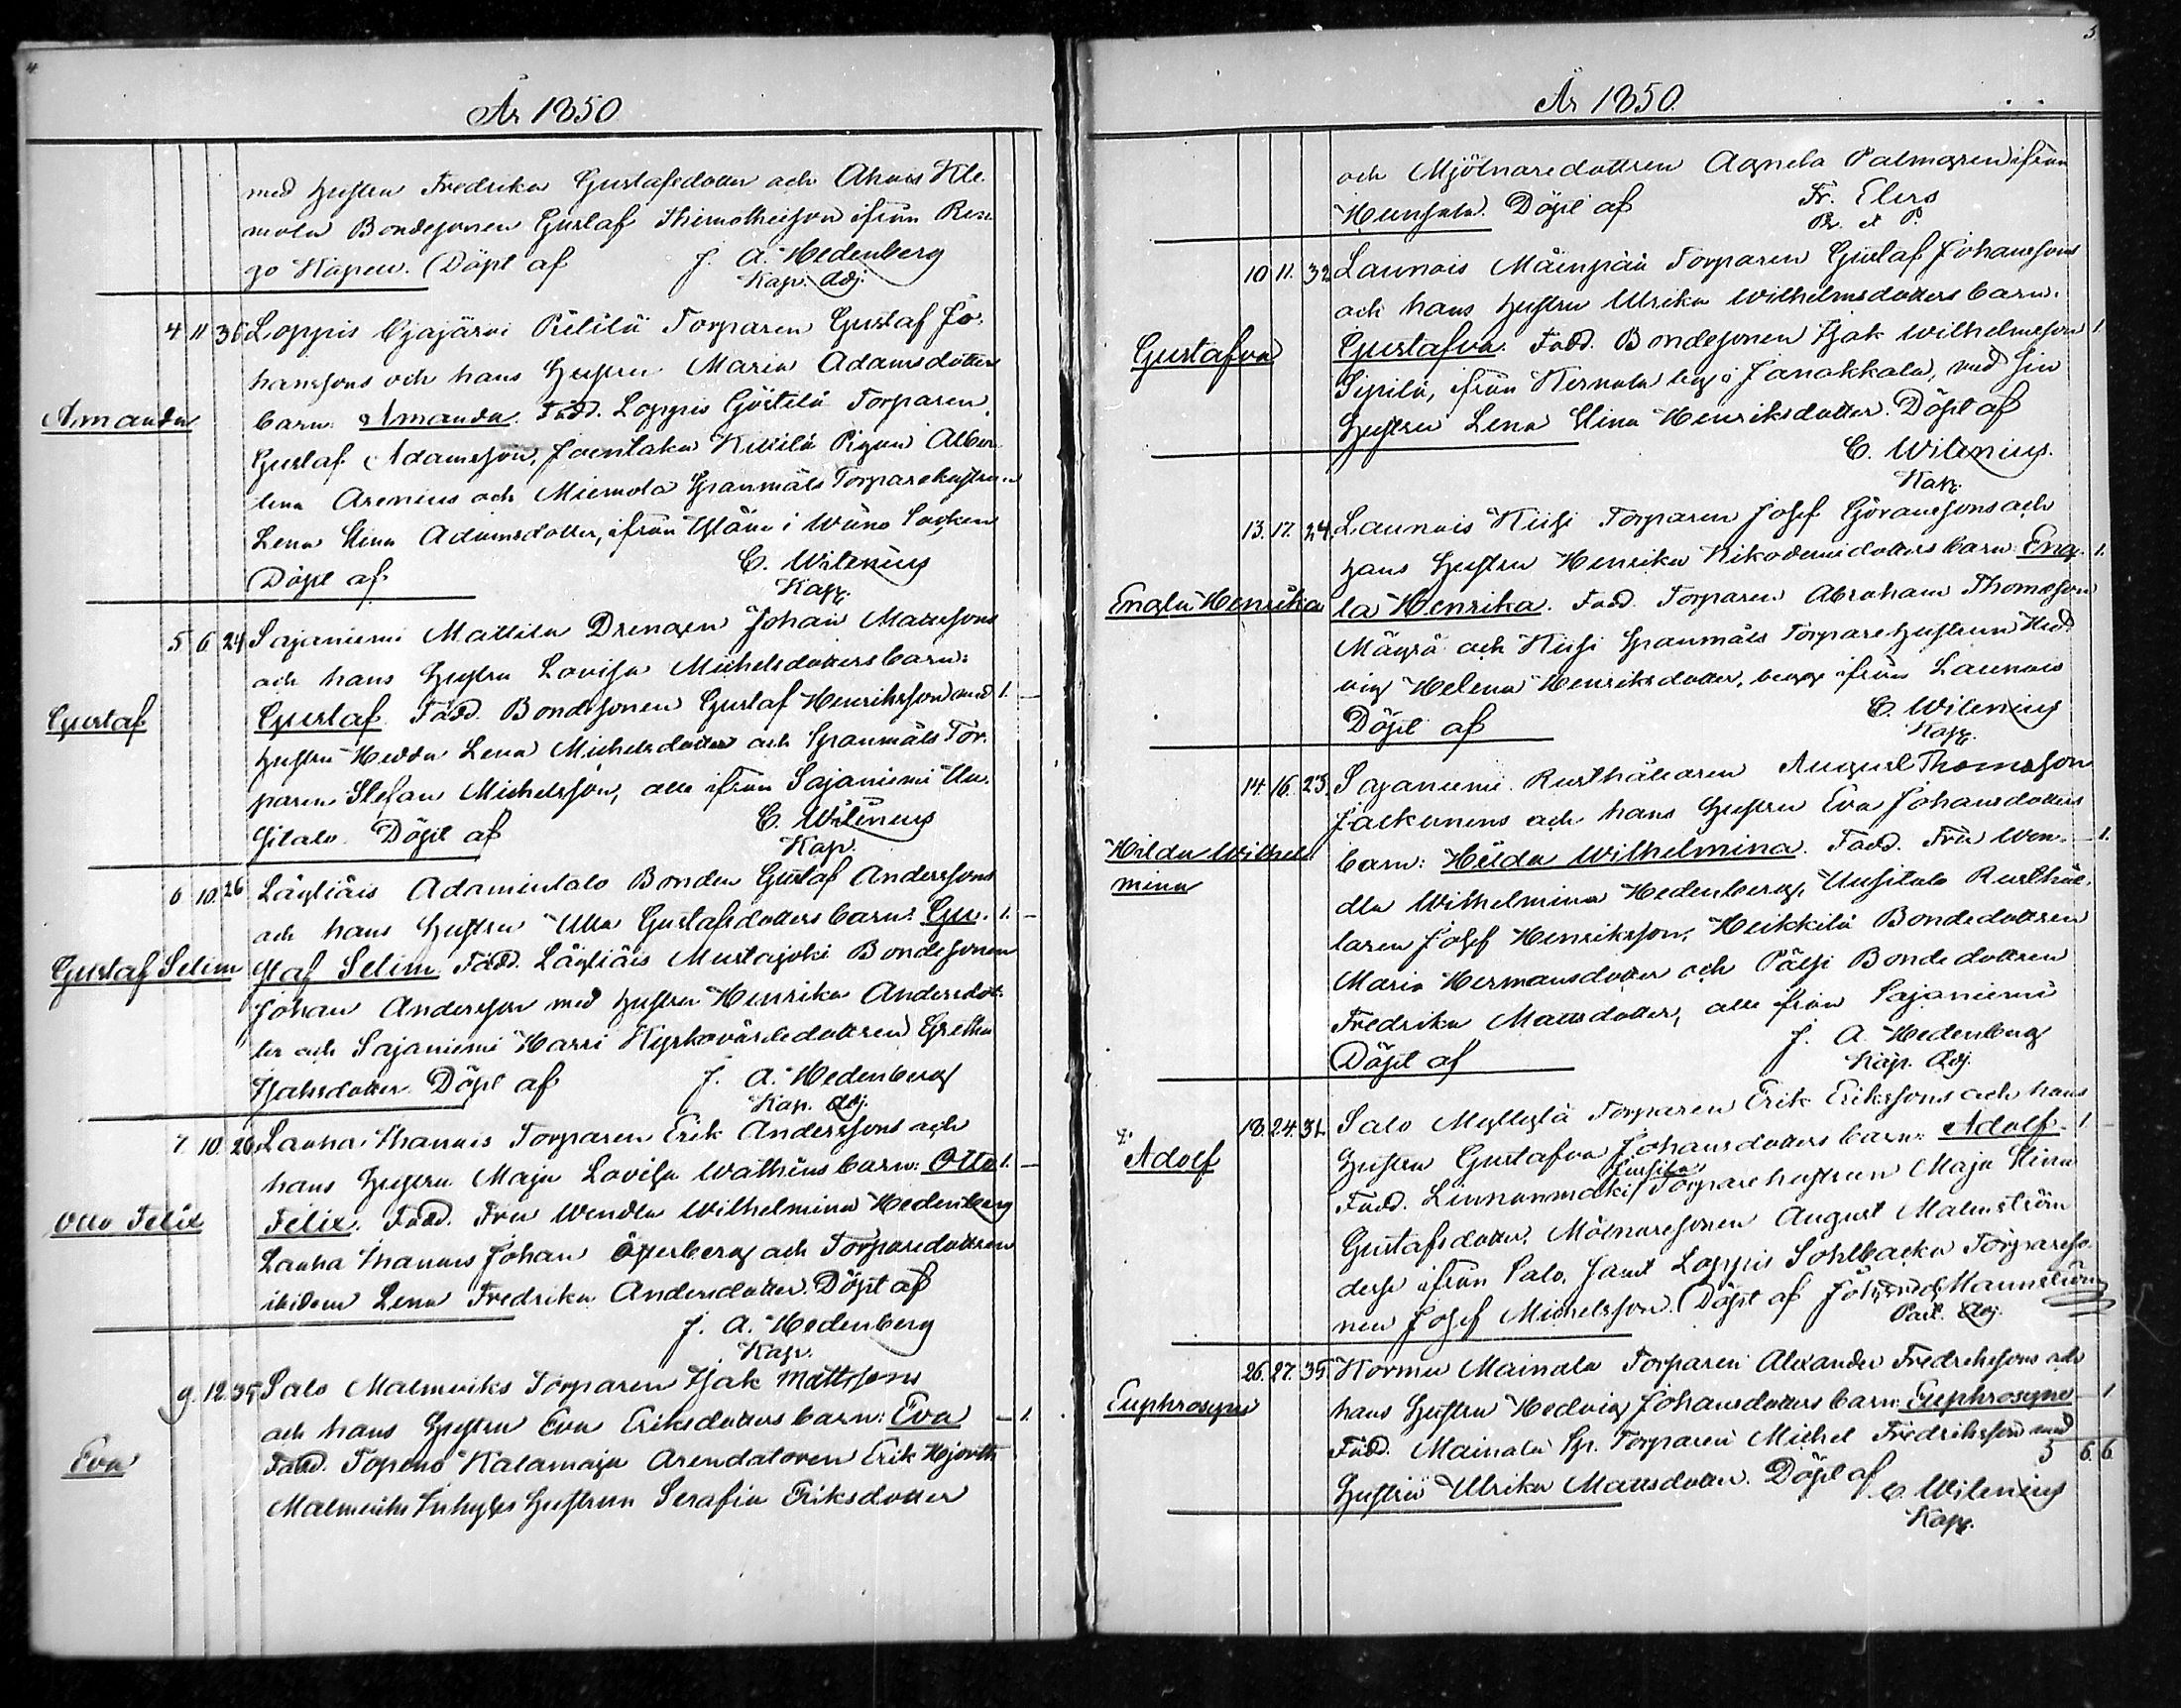 4
År 1850
med hustru Fredrika Gustafsdotter och Ahois Kle
mola Bondesonen Gustaf Thimotheison ifrån Ren
go Kapell. Döpt af J. A. Hedenberg
Kap. Adj.
4 11 36 Loppis Ojajärvi Pätilä Torparen Gustaf Jo-
hanssons och hans Hustru Maria Adamsdotters
Amanda barn: Amanda. Fadd. Loppis Torparen
Gustaf Adamsson, Joentaka Kivilä Pigan Alber
tina Arenius och Miemola Spanmåls Torparehustrun
Lena Stina Adamsdotter, ifrån i Wåno Socken
Döpt af C. Wilenius
Kapp.
5 6 24 Sajaniemi Mattila Drengen Johan Mattssons
och hans Hustru Lovisa Michelsdotters barn:
Gustaf Gustaf. Fadd. Bondesonen Gustaf Henriksson med 1. –
hustru Hedda Lena Michelsdotter och Spanmåls Tor-
paren Stefan Michelsson, alla ifrån Sajaniemi Uu-
sitalo. Döpt af C. Wilenius
Kap.
6 10. 26 Läyliäis Adamintalo Bonden Gustaf Anderssons
och hans Hustru Ulla Gustafsdotters barn: Gu- 1. –
Gustaf Selim staf Selim. Fadd. Läyliäis Mustajoki Bondesonen
Johan Andersson med hustru Henrika Andersdot-
ter och Sajaniemi Harri Kyrkovärdedottren Gretha
Isaksdotter. Döpt af J. A. Hedenberg
Kap. Adj.
7. 10. 20 Lauha Thannis Torparen Erik Anderssons och
hans Hustru Maja Lovisa Wathéns barn: Otto 1. –
Otto Felix Felix. Fadd. Fru Wendla Wilhelmina Hedenberg
Lauha Thannis Johan Österberg och Torparedottren
ibidem Lena Fredrika Andersdotter. Döpt af
J. A. Hedenberg
Kap.
9. 12. 35 Salo Malmviks Torparen Isak Mattssons
och hans Hustru Eva Eriksdotters barn: Eva – 1.
Eva Fadd. Topeno Kalamaja Arendatoren Erik Hjorth
Malmviks Inhyses Hustrun Serafia Eriksdotter
5.
År 1850.
och Mjölnaredottren Agneta Palmgren ifrån
Hunsala. Döpt af Fr. Elers
Pr. et P.
10 11. 32 Launois Mäenpää Torparen Gustaf Johanssons
och hans Hustru Ulrika Wilhelmsdotters barn:
Gustafva Gustafva. Fadd. Bondesonen Isak Wilhelmsson 1.
Sipilä, ifrån Kernala by i Janakkala, med sin
Hustru Lena Stina Henriksdotter. Döpt af
C. Wilenius.
Kapp.
13. 17. 24 Launois Torparen Josef Göranssons och
hans Hustru Henrika Nikodemidotters barn: Eng- 1.
Engla Henrika la Henrika. Fadd. Torparen Abraham Thomasson
Mäyrä och Spanmåls Torparehustrun Hed-
vig Helena Henriksdotter, begge ifrån Launois
Döpt af C. Wilenius
Kapp.
14. 16. 23. Sajaniemi Rusthållaren August Thomasson
Jackunens och hans Hustru Eva Johansdotters
Hilda Wilhel- barn: Hilda Wilhelmina. Fadd. Fru Wen- – 1.
mina dla Wilhelmina Hedenberg, Uusitalo Rusthål-
laren Josef Henriksson, Heikkilä Bondedottren
Maria Hermansdotter och Pälsi Bondedottren
Fredrika Mattsdotter, alla från Sajaniemi
Döpt af J. A. Hedenberg
Kap. Adj.
18. 24. 31. Salo Myllylä Torparen Erik Erikssons och hans
Adolf Hustru Gustafva Johansdotters barn: Adolf. 1 –
Fadd. Linnanmäki Torparehustrun Maja Stina
Gustafsdotter, Mölnaresonen August Malmström
desse ifrån Salo, samt Loppis Sohlbacka Torpareso-
nen Josef Michelsson. Döpt af Mannström
Past. Adj.
26. 27. 35. Kormu Mainala Torparen Alexander Fredrikssons och
Euphrosyne hans Hustru Hedvig Johansdotters barn: Euphrosyne – 1
Fadd. Mainala Sp. Torparen Michel Fredriksson med
5 6. 6
Hustru Ulrika Mattsdotter. Döpt af C. Wilenius
Kapp.